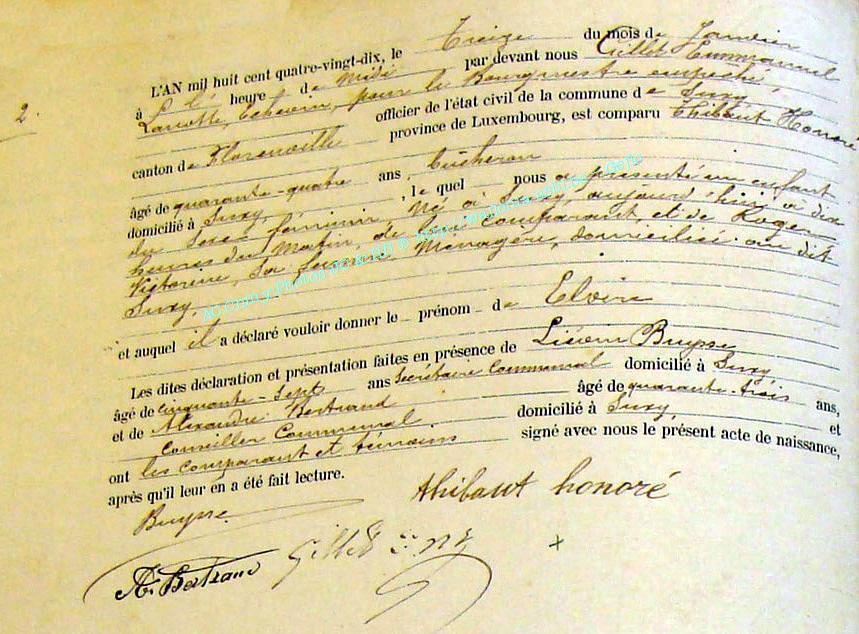 2.
L'AN mil huit cent quatre-vingt-dix, le Treize du mois de Janvier
à l' heure de Midi par devant nous Gillet Emmanuel
Laviotte, Echevin, pour le Bourgmestre empêché,
officier de l'état civil de la commune de Suxy,
canton de Florenville province de Luxembourg, est comparu Thibaut Honoré
âgé de quarante-quatre ans, Bûcheron
domicilié à Suxy, , le quel nous a présenté un enfant
du sexe féminin, né à Suxy, aujourd'hui à dix
heures du Matin, de lui Comparant, et de Roger
Victorine, sa femme Ménagère, domiciliée au dit
Suxy,
et auquel il a déclaré vouloir donner le prénom de
Les dites déclaration et présentation faites en présence de Buysse
âgé de cinquante-sept ans Secrétaire Communal domicilié à Suxy
et de Alexandre Bertrand âgé de quarante-trois ans,
Conseiller Communal domicilié à Suxy, et
ont les Comparant et témoins signé avec nous le présent acte de naissance,
après qu'il leur en a été fait lecture.
thibaut honoré
Buysse
A. Bertrand Gillet